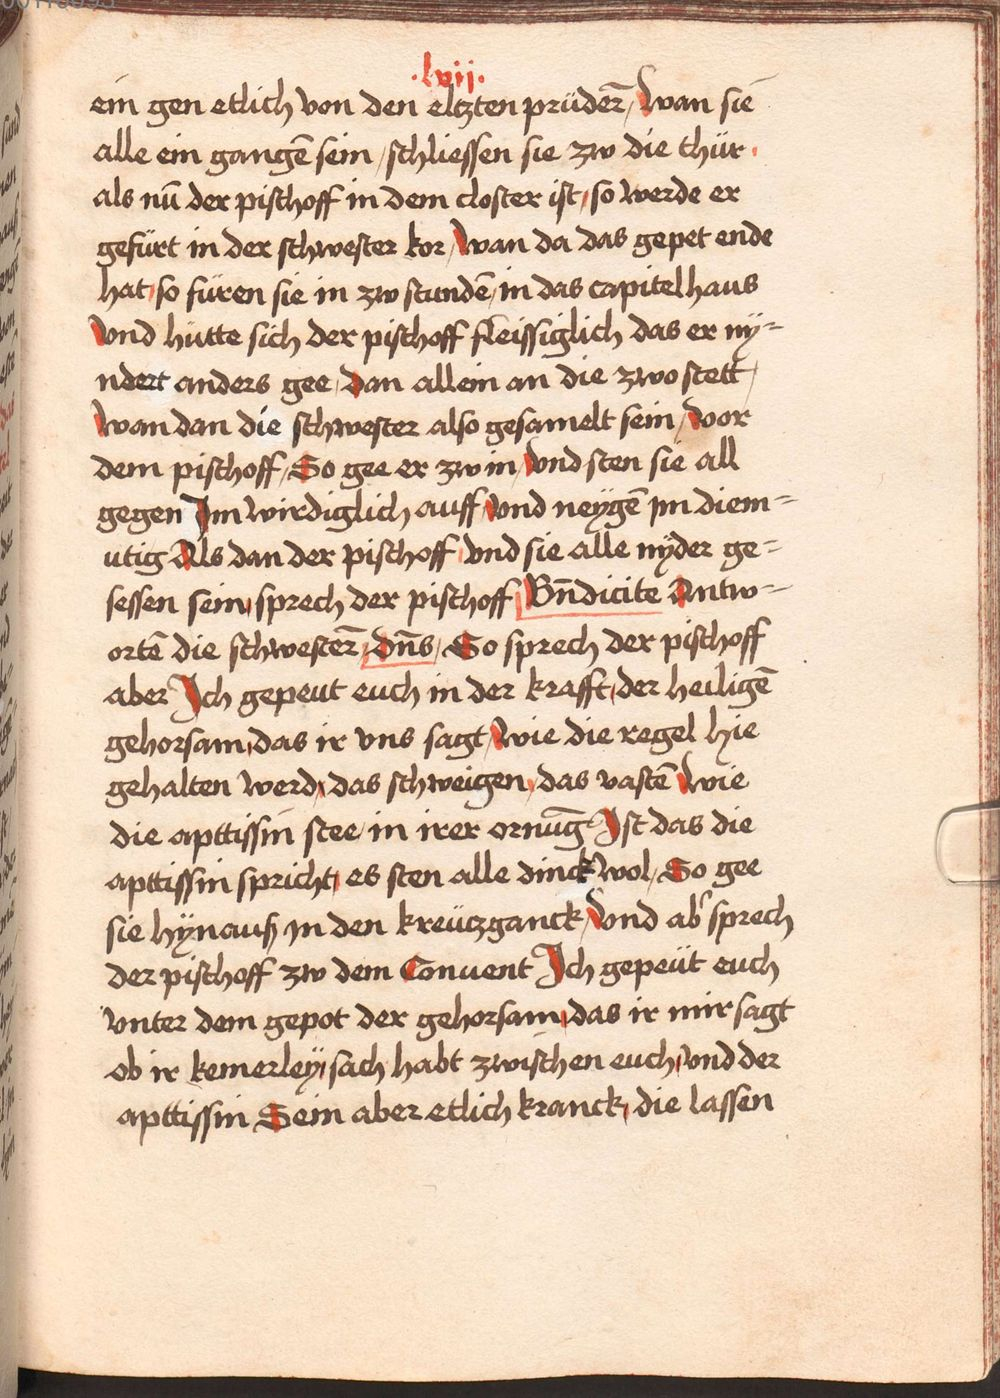 ·lvii·
ein gen etlich von den eltzten prüder̄ / wan sie
alle ein gangē sein / schliessen sie zw die thür ·
als nū der pischoff in dem closter ist / so werde er
gefürt in der schwester kor / wan da das gepet ende
hat / so füren sie in zw stundē / in das capitel haus
vnd hütte sich der pischoff fleissiglich das er ny=
ndert anders gee / dan allein an die zwo stett /
wan dan die schwester also gesamelt sein / vor
dem pischoff / So gee er zw in / vnd sten sie all
gegen Im wirdiglich auff / vnd neygē im diem=
utig Als dan der pischoff / vnd sie alle nyder ge=
sessen sein / sprech der pischoff Bn̄dicite Antw=
ortē die schwester̄ / dn̄s / So sprech der pischoff
aber Ich gepeut euch in der krafft / der heiligē
gehorsam / das ir vns sagt / wie die regel hie
gehalten werd / das schweigen / das vastē wie
die apttissin stee / in irer ornūg Ist das die
apttissin spricht / es sten alle dinck wol / So gee
sie hynauß in den kreützganck / vnd ab' sprech
der pischoff zw dem Conuent Ich gepeüt euch
vnter dem gepot der gehorsam / das ir mir sagt
ob ir keinerley / sach habt zwischen euch / vnd der
apttissin Sein aber etlich kranck / die lassen